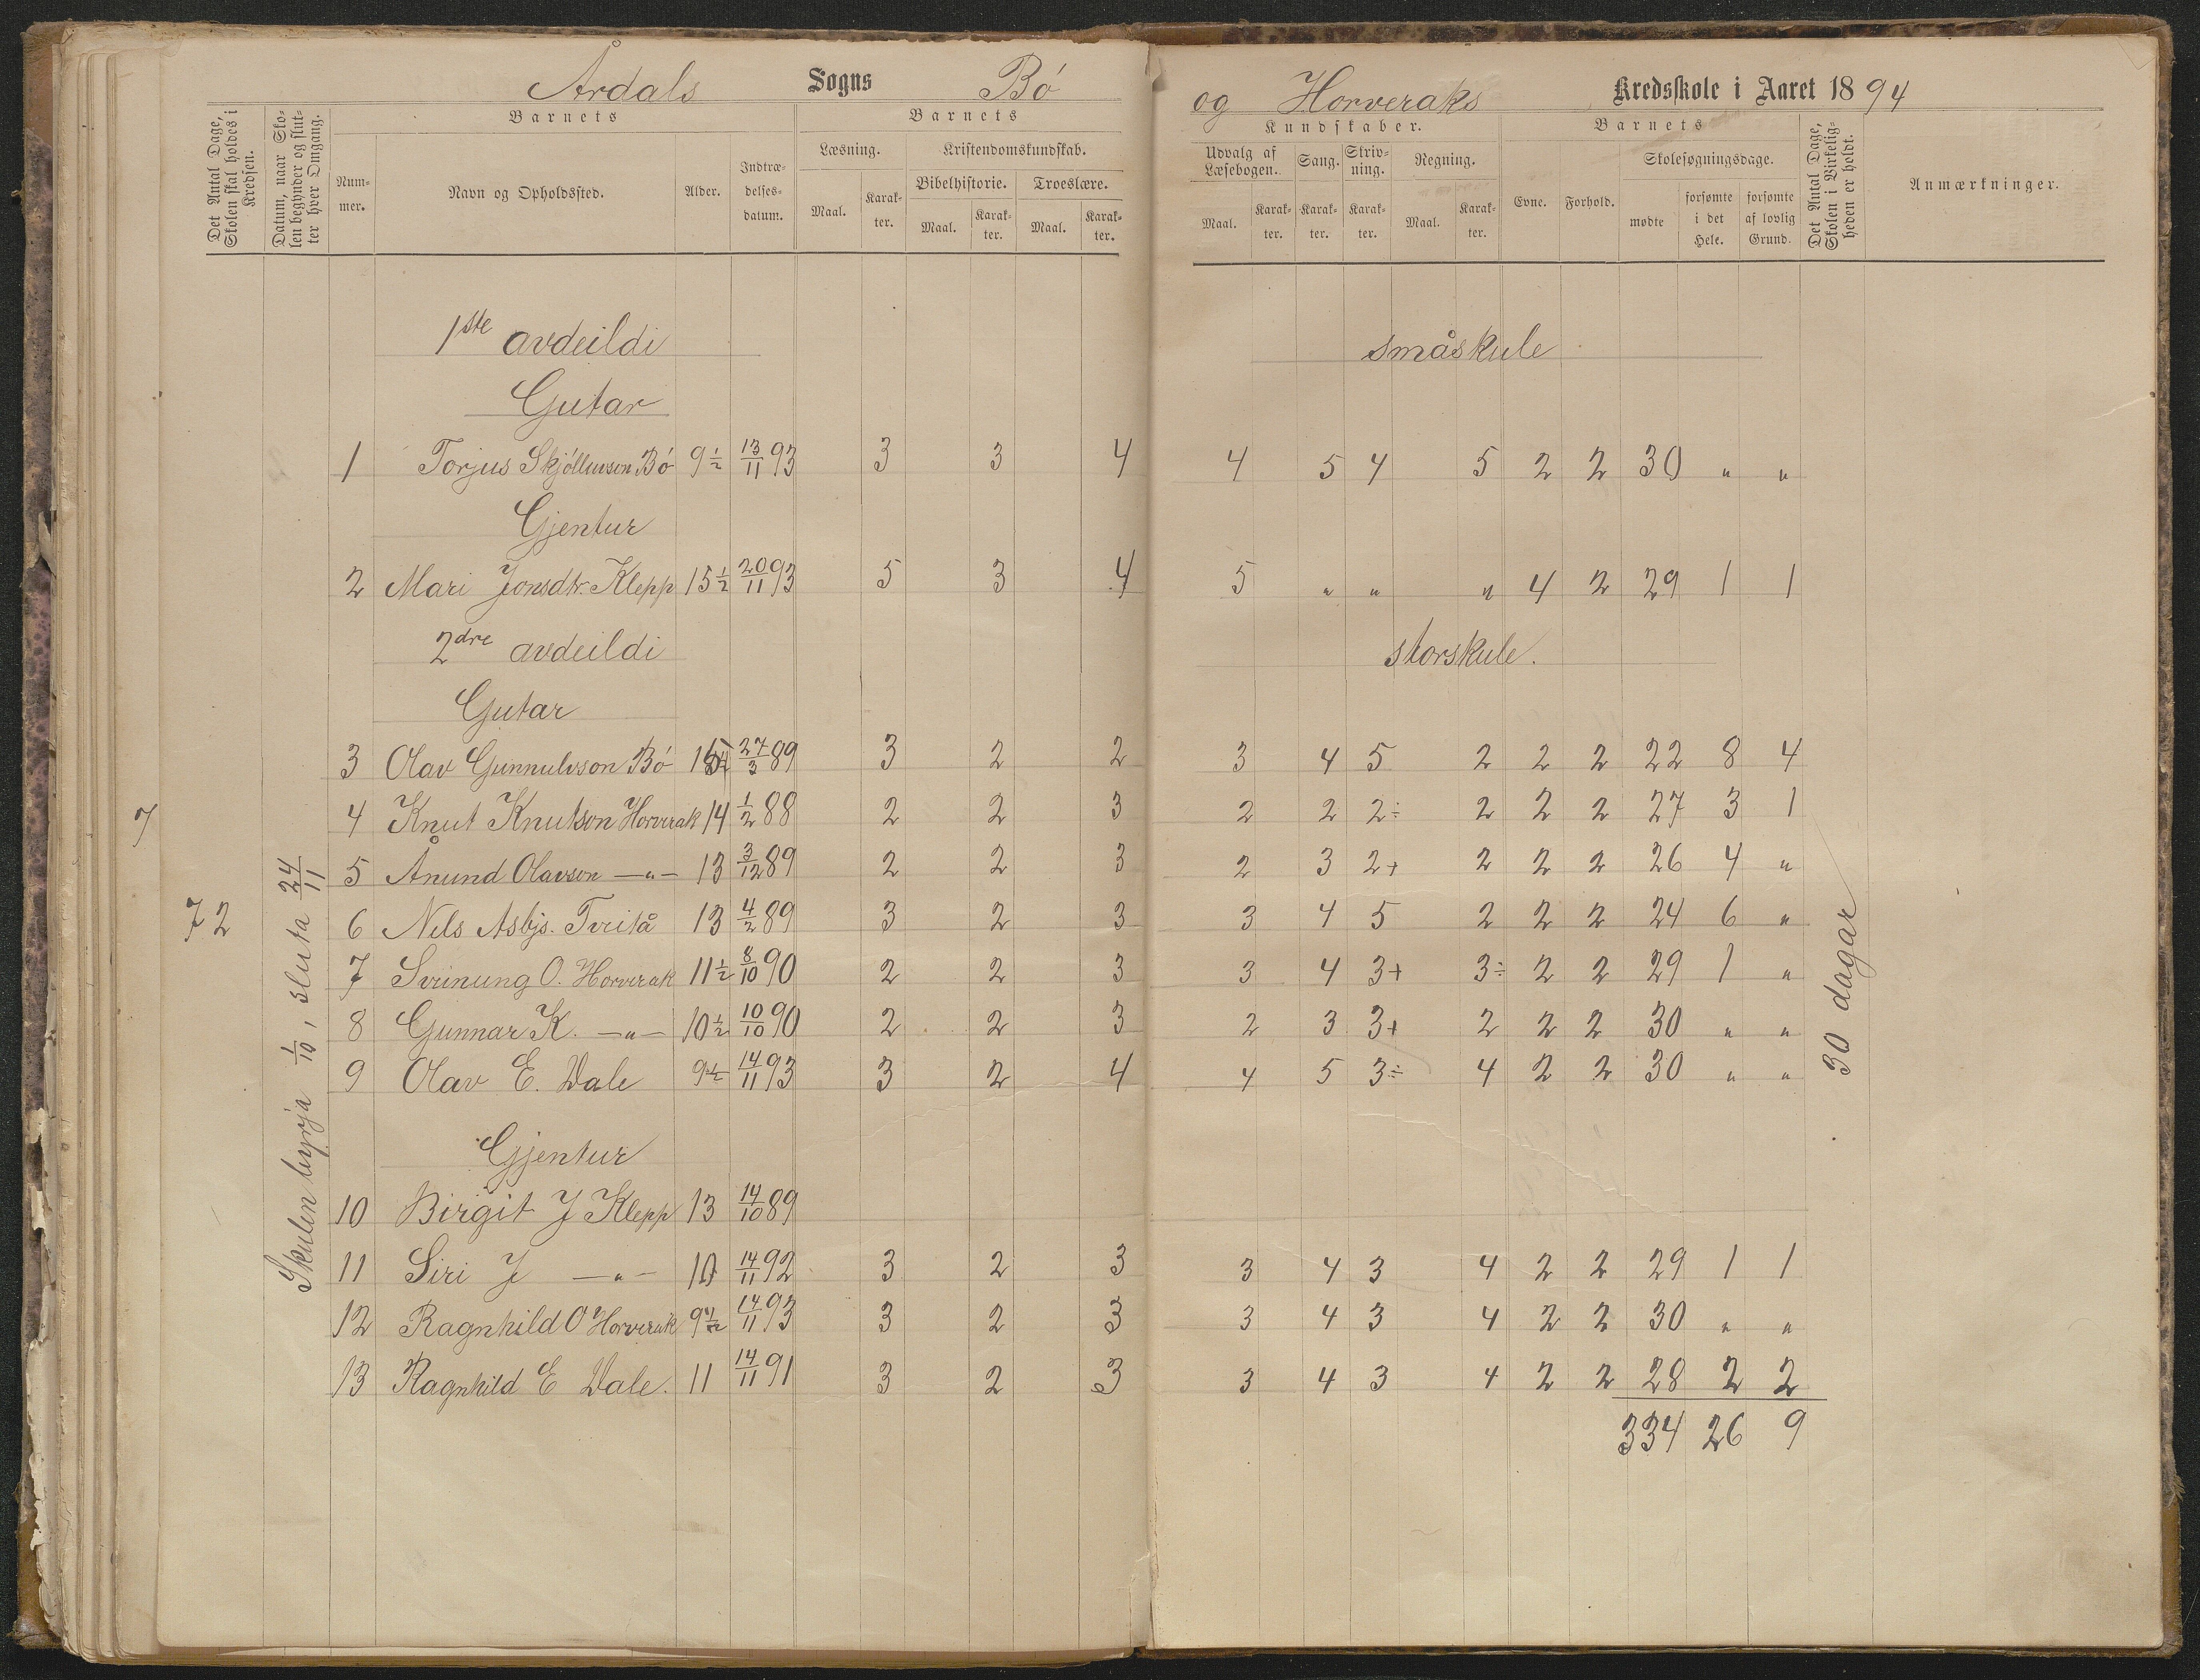 Årdals Sogns Bö og Horveraks Kredsskole i Aaret 1894
Det Antal Dage, Skolen skal holdes i Kredsen.
Datum, naar Skolen begynder og slutter hver Omgang.
Barnets
Nummer.
Navn og Opholdssted.
Alder.
Indtrædelsesdatum.
Barnets
Læsning.
Kristendomskundskab.
Maal.
Karakter.
Bibelhistorie.
Troeslære.
Maal.
Karakter.
Maal.
Karakter.
Kundskaber.
Udvalg af Læsebogen.
Sang.
Skrivning.
Regning.
Maal.
Karakter.
Karakter.
Karakter.
Maal.
Karakter.
Barnets
Evne.
Forhold.
Skolesøgningsdage.
mødte
forsømte i det Hele.
forsømte af lovlig Grund.
Det Antal Dage, Skolen i Virkeligheden er holdt.
Anmærkninger.
1ste avdeildi småskule
Gutar
1 Torjus Skjölluvson Bö 9 1/2 13/11 93 3 3 4 4 5 4 5 2 2 30 " "
Gjentur
2 Mari Jonsdtr. Klepp 15 1/2 20/11 93 5 3 4 5 " " " 4 2 29 1 1
2dre avdeildi storskule.
Gutar
3 Olav Gunnulvson Bö 27/3 89 3 2 2 3 4 5 2 2 2 22 8 4
4 Knut Knutson Horverak 14 1/2 88 2 2 3 2 2 2÷ 2 2 2 27 3 1
5 Ånund Olavson —"— 13 3/12 89 2 2 3 2 3 2+ 2 2 2 26 4 "
6 Nils Asbjs. Tveitå 13 4/2 89 3 2 3 3 4 5 2 2 2 24 6 "
7 Sveinung O. Horverak 11 1/2 8/10 90 2 2 3 3 4 3+ 3÷ 2 2 29 1 "
8 Gunnar K. —"— 10 1/2 10/10 90 2 2 3 2 3 3+ 2 2 2 30 " "
9 Olav E. Dale 9 1/2 14/11 93 3 2 4 4 5 3÷ 4 2 2 30 " "
Gjentur
10 Birgit J Klepp 13 14/10 89
11 Siri J —"— 10 14/11 92 3 2 3 3 4 3 4 2 2 29 1 1
12 Ragnhild O Horverak 9 1/2 14/11 93 3 2 3 3 4 3 4 2 2 30 " "
13 Ragnhild E Dale. 11 14/11 91 3 2 3 3 4 3 4 2 2 28 2 2
334 26 9
7
72
Skulen byrja 1/10, sluta 24/11
30 dagar